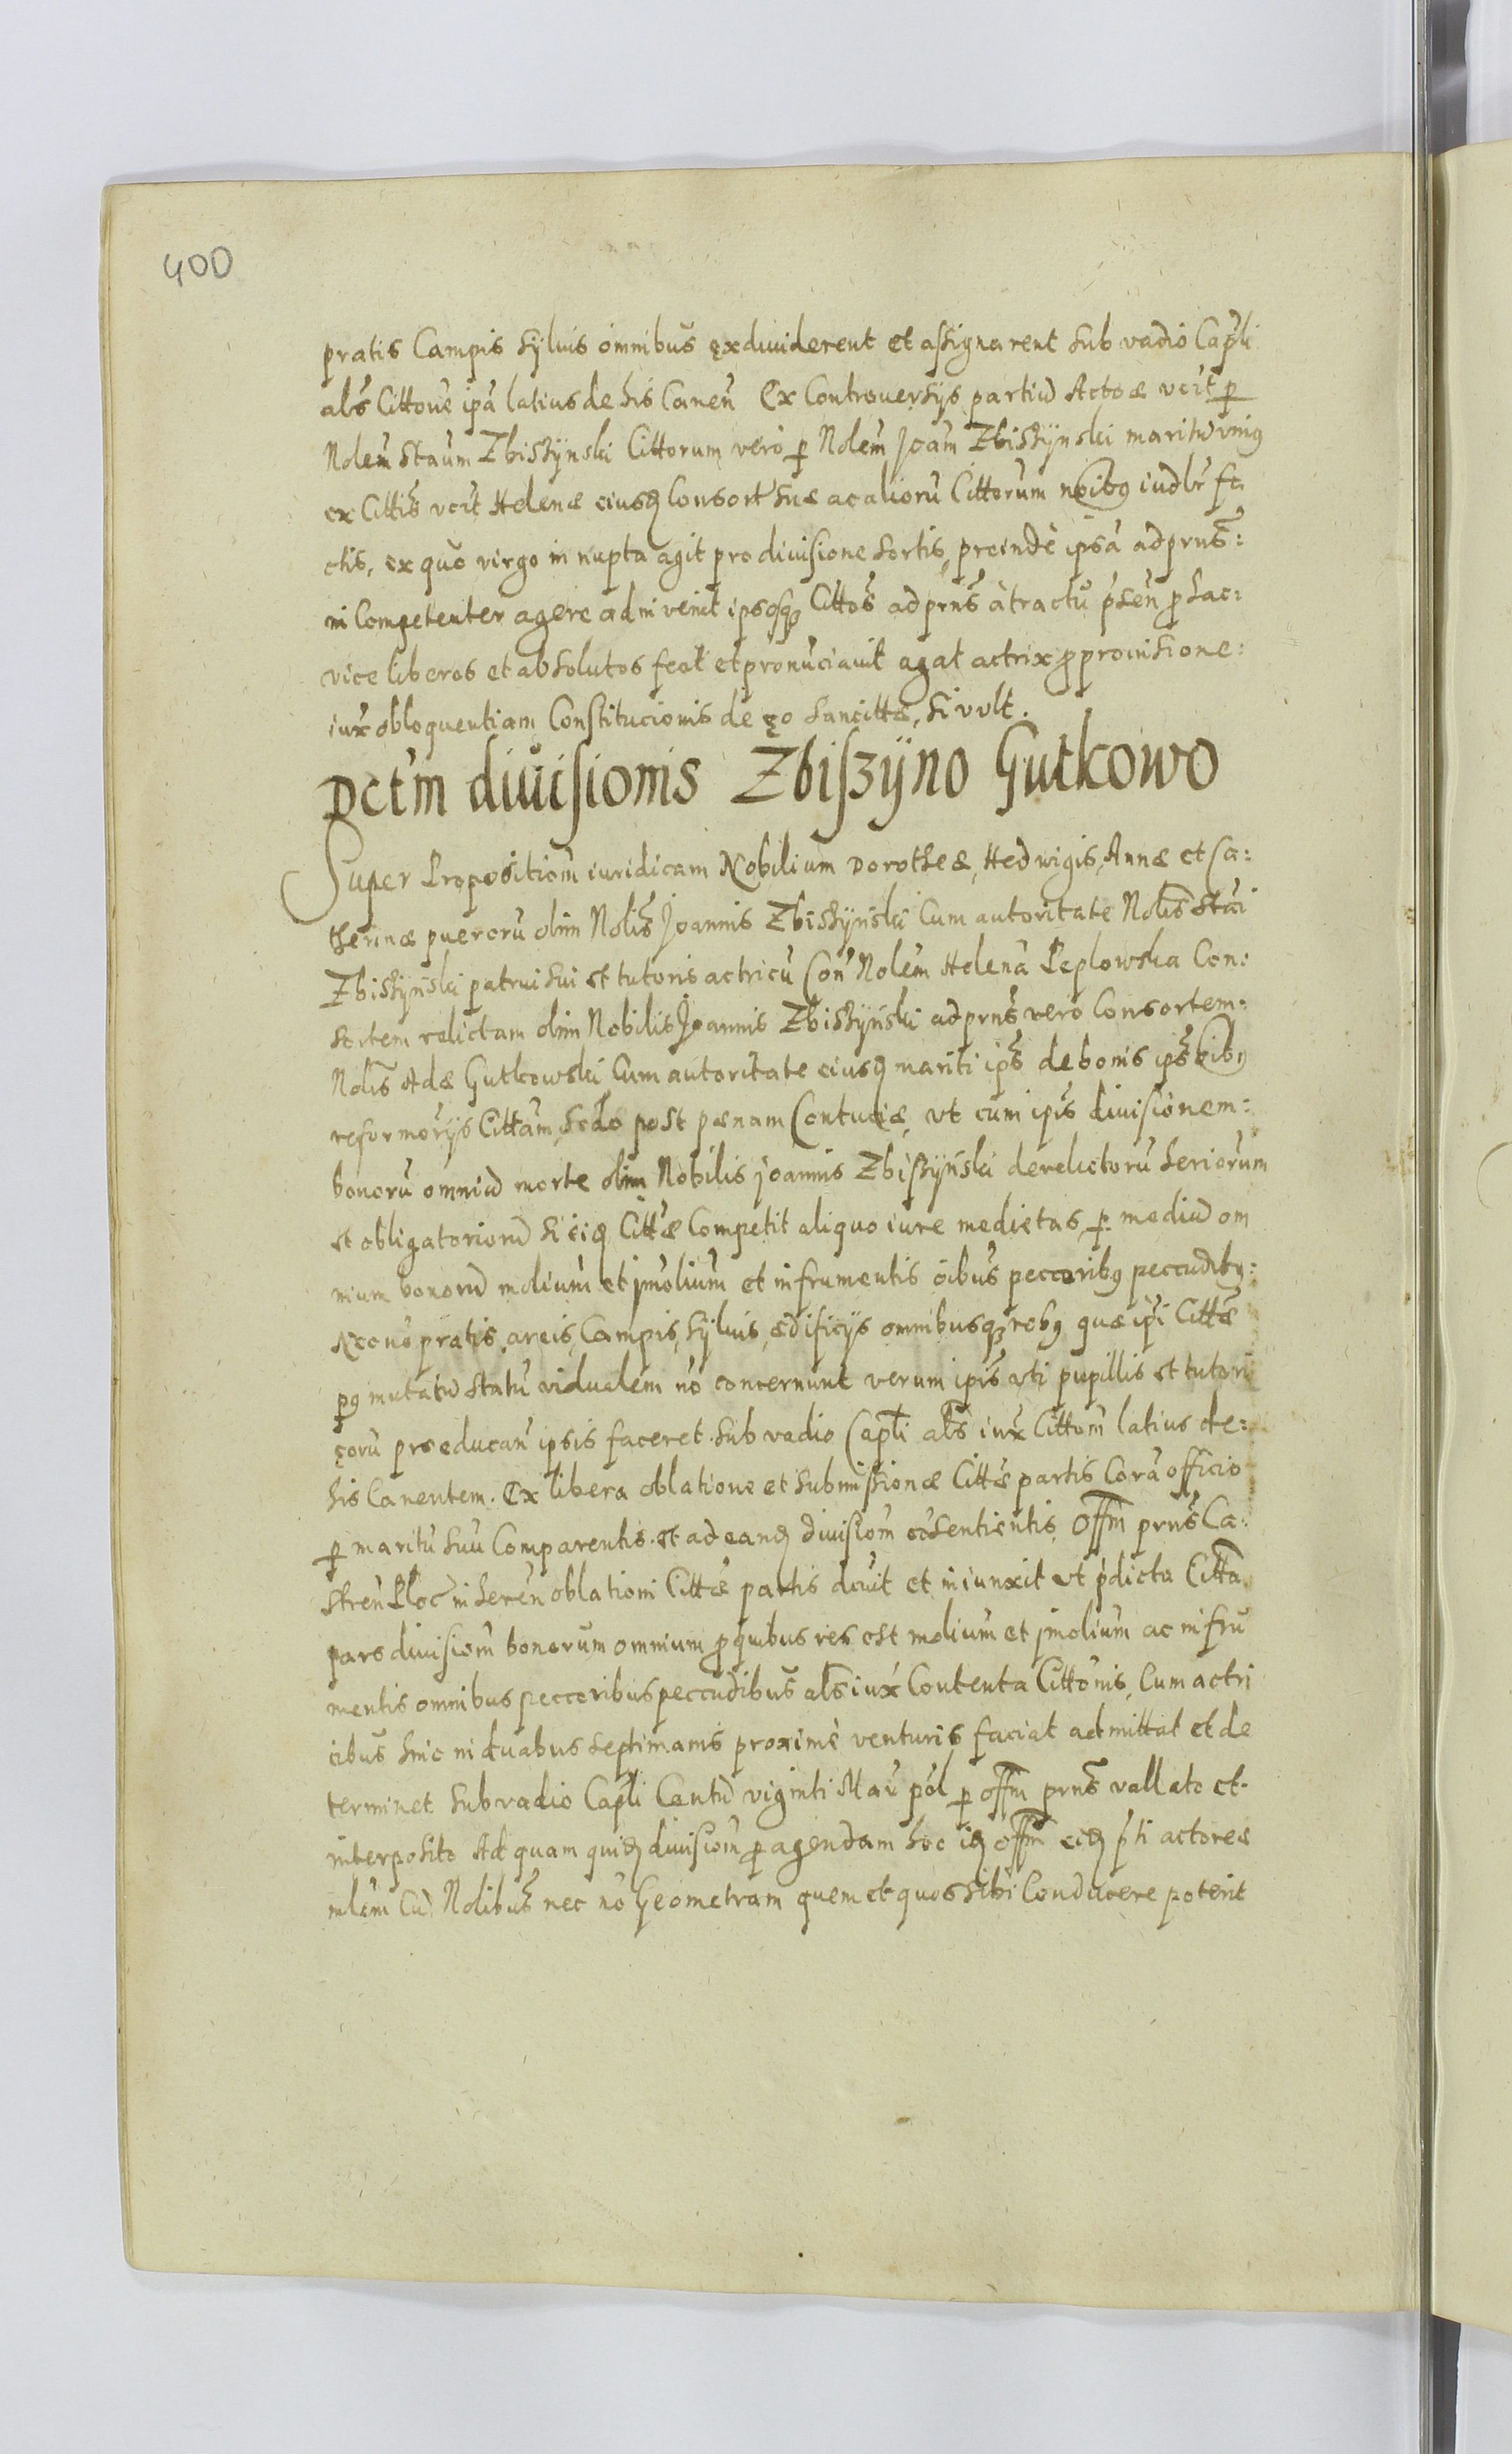 400
pratis Campis Sÿluis omnibus exdiuiderent et assignarent sub vadio Capli
als Cittone ipa latius de his Canen Ex Controuersÿs partiu Actoræ vert p
Nolem Staum Zbiszÿnski Cittorum vero p Nolem Joam Zbiszÿnski maritu vnius
ex Cittis vert Helenæ eiusq Consort suæ ac alioru Cittorum noibus iudlr fa
ctis, ex quo virgo in nupta agit pro diuisione sortis, preinde ipsa ad prns:
in Competenter agere adinvenit ipsosq Cittos ad prns à tractu psen p hac:
vice liberos et absolutos fecit et pronunciauit agat actrix p prouisione:
iux obloquentiam Constitucionis de eo Sancittæ, si vult.
Dctm diuisionis Zbiszÿno Gutkowo
Super Propositiom iuridicam Nobilium Dorotheæ, Hedwigis, Annæ et Ca:
therinæ pueroru olim Nolis Joannis Zbiszÿnski Cum autoritate Nolis Stai
Zbiszÿnski patrui sui et tutoris actricu Con Nolem Helena Peplowska Con:
sortem relictam olim Nobilis Joannis Zbiszÿnski ad prns vero Consortem:
Nolis Adæ Gutkowski Cum autoritate eiusq mariti ips de bonis ips oibus
reformorÿs Cittam, Scdo post pænam Contuciæ, vt cum ipis diuisionem:
bonoru omniu morte olim Nobilis Joannis Zbiszÿnski derelictoru seriorum
et obligatorioru si eiq Cittæ Competit aliquo iure medietas, p mediu om
nium bonoru moliium et jmolium et in frumentis oibus peccoribus peccudibus:
Necno pratis, areis, Campis, Sÿluis, ædificÿs omnibusq rebus quæ ipi Cittæ
pp mutatu statu vidualem no concernunt verum ipis vti pupillis et tutori
eoru pro educan ipsis faceret. sub vadio Capli als iux Cittom latius de:
his Canentem. Ex libera oblatione et submissione Cittæ partis Cora officio
p maritu suu Comparentis. et ad eanq diuisiom cosentientis, Offm prns Ca:
stren Ploc in heren oblationi Cittæ partis dcuit et iniunxit vt pdicta Citta
pars diuisiom bonorum omnium p quibus res est molium et jmolium ac in fru
mentis omnibus peccoribus peccudibus als iux Contenta Cittonis, Cum actri
cibus hinc in duabus septimanis proxime venturis faciat admittat et de
terminet sub vadio Capli Centu viginti Mar pol p offm prns vallato et
interposito Ad quam quiq diuisiom p agendam hoc iq offm eiq pti actoreæ
mlem Cu Nolibus nec no Geometram quem et quos sibi Conducere poterit